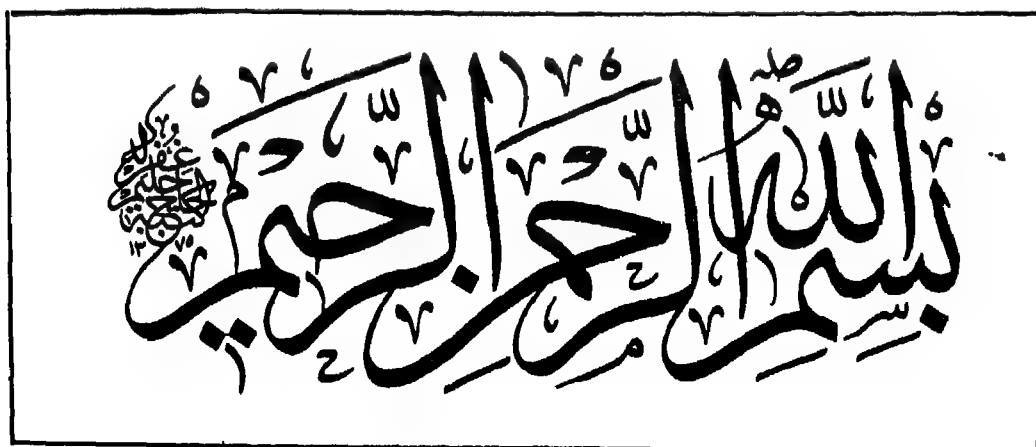 بِسْمِ اللّٰهِ الرَّحْمٰنِ الرَّحِيْمِ
١٣٧٥